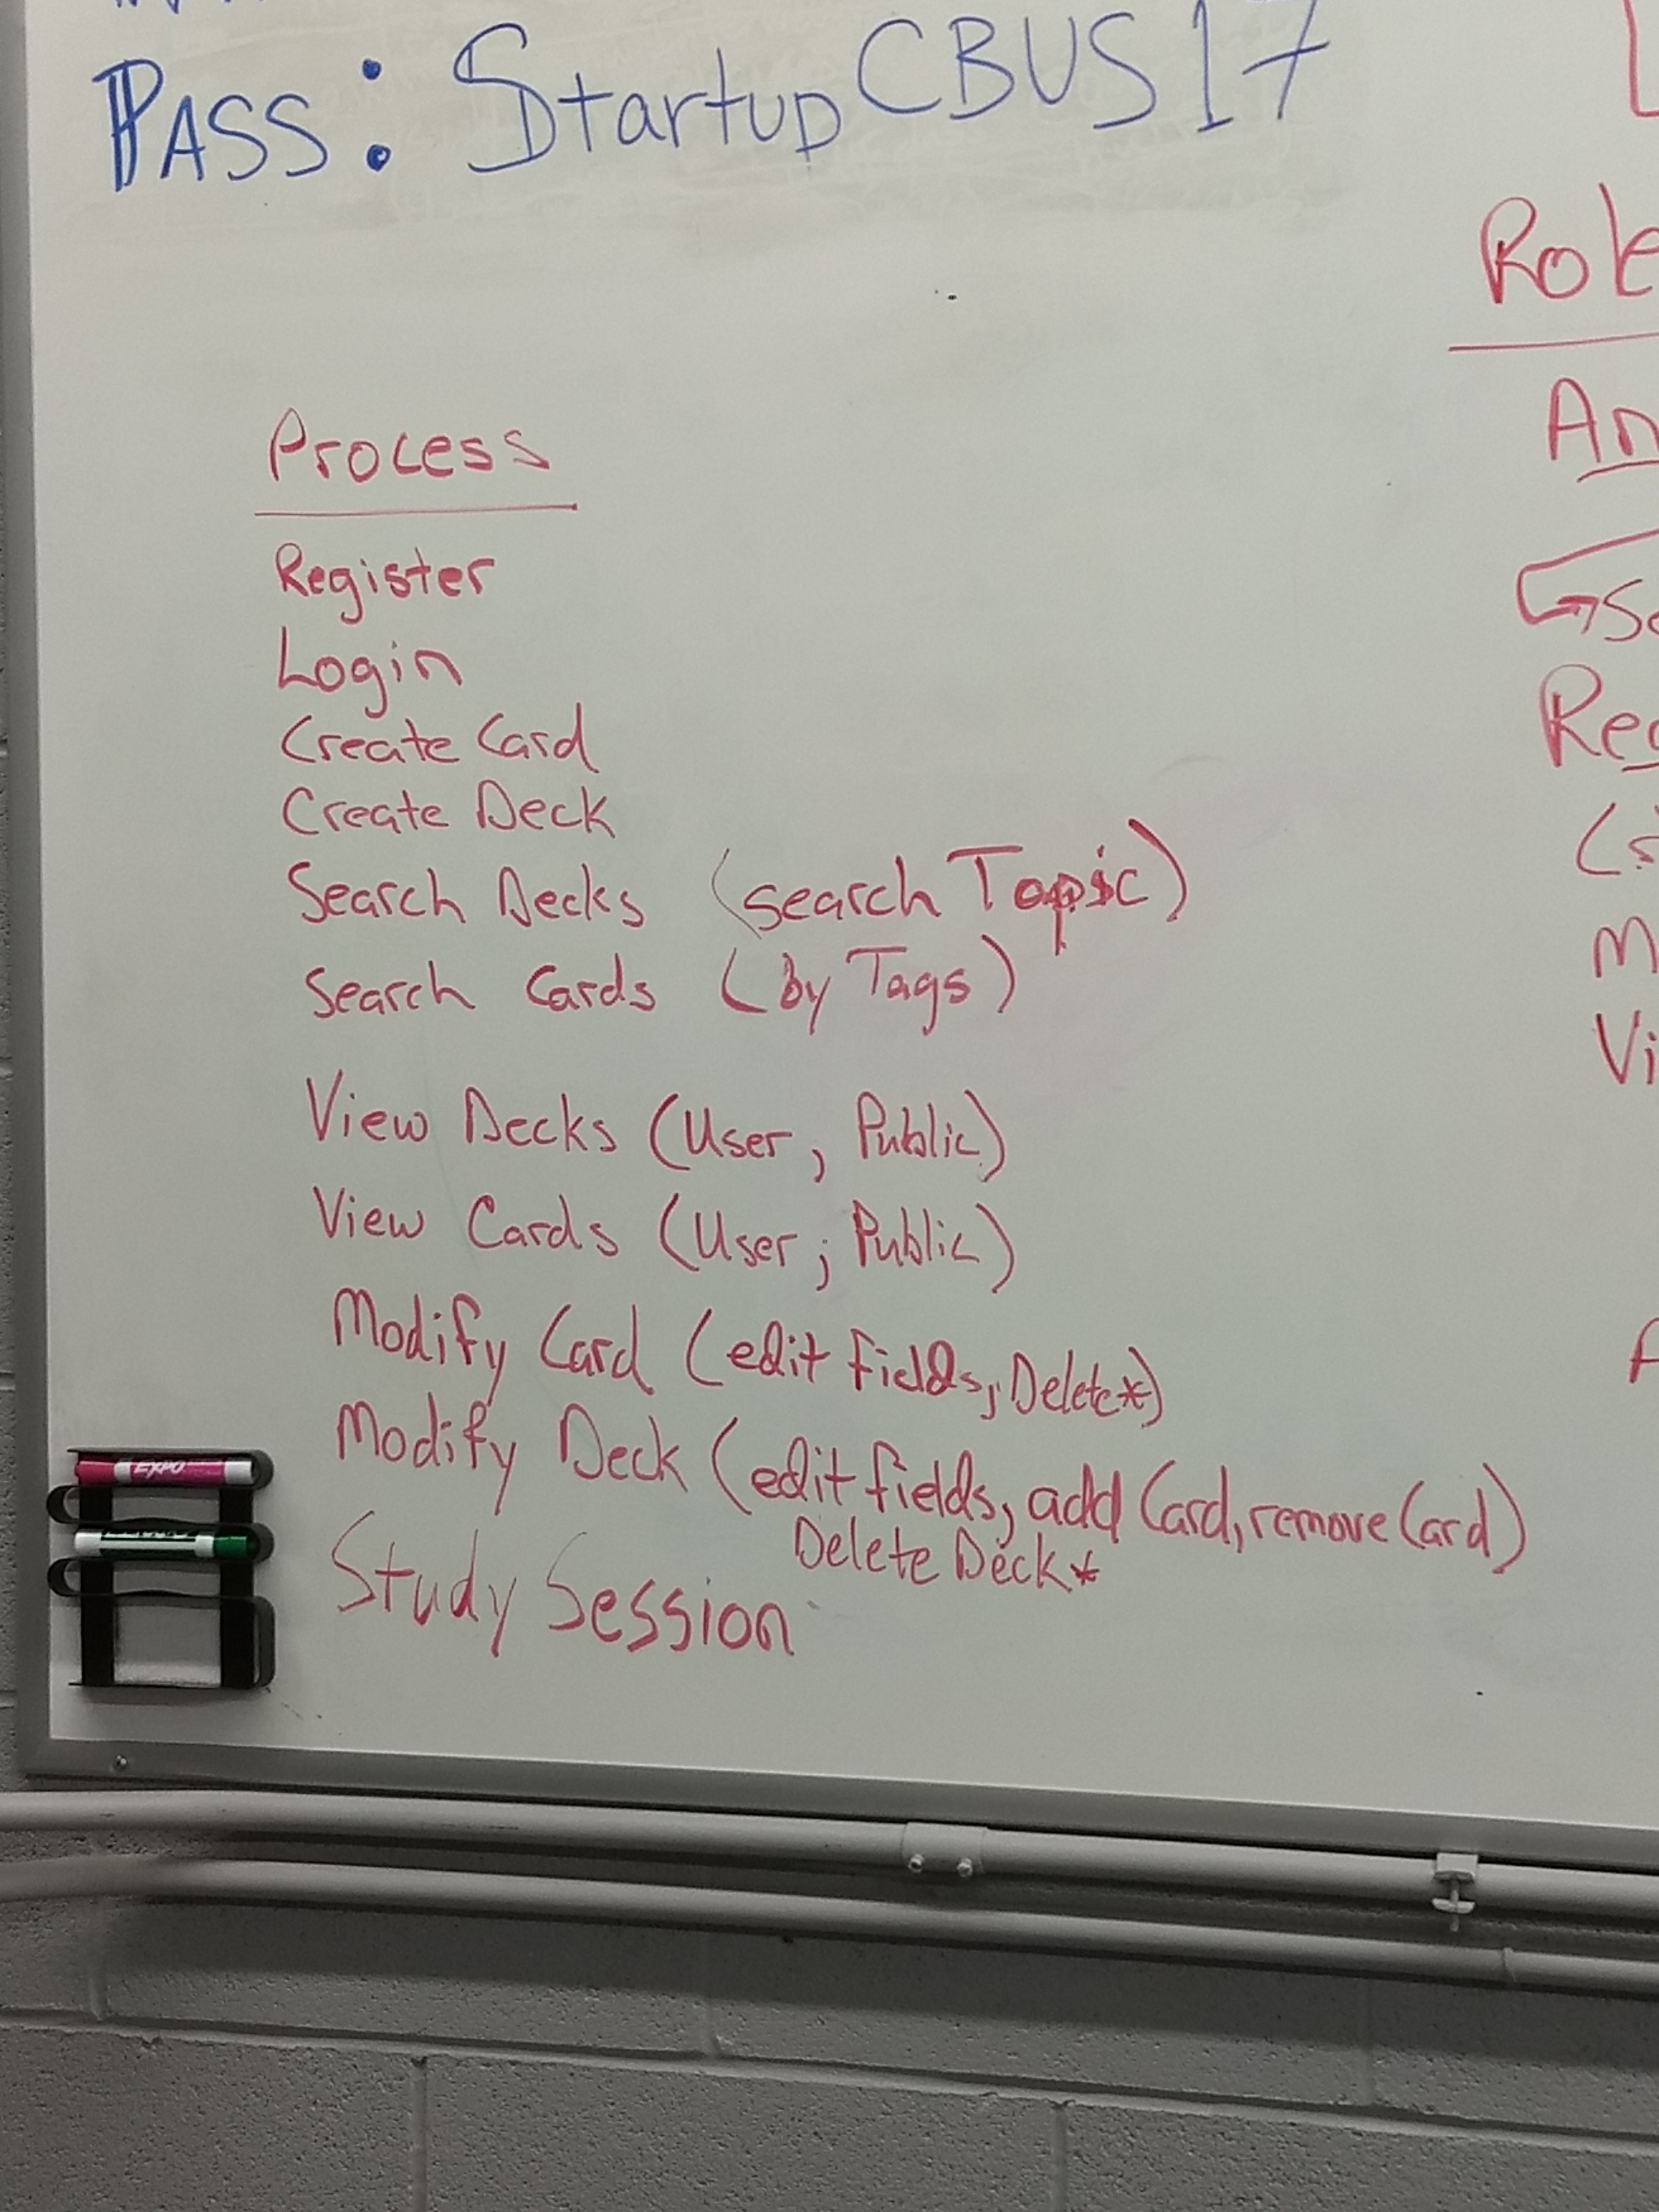 PASS: StartupCBUS17
Process
Register
Login
Create Card
Create Deck
Search Decks (search Topic)
Search Cards (by Tags)
View Decks (User, Public)
View Cards (User; Public)
Modify Card (edit fields, Delete*)
Modify Deck (edit fields, add Card, remove Card)
Delete Deck*
Study Session
EXPO